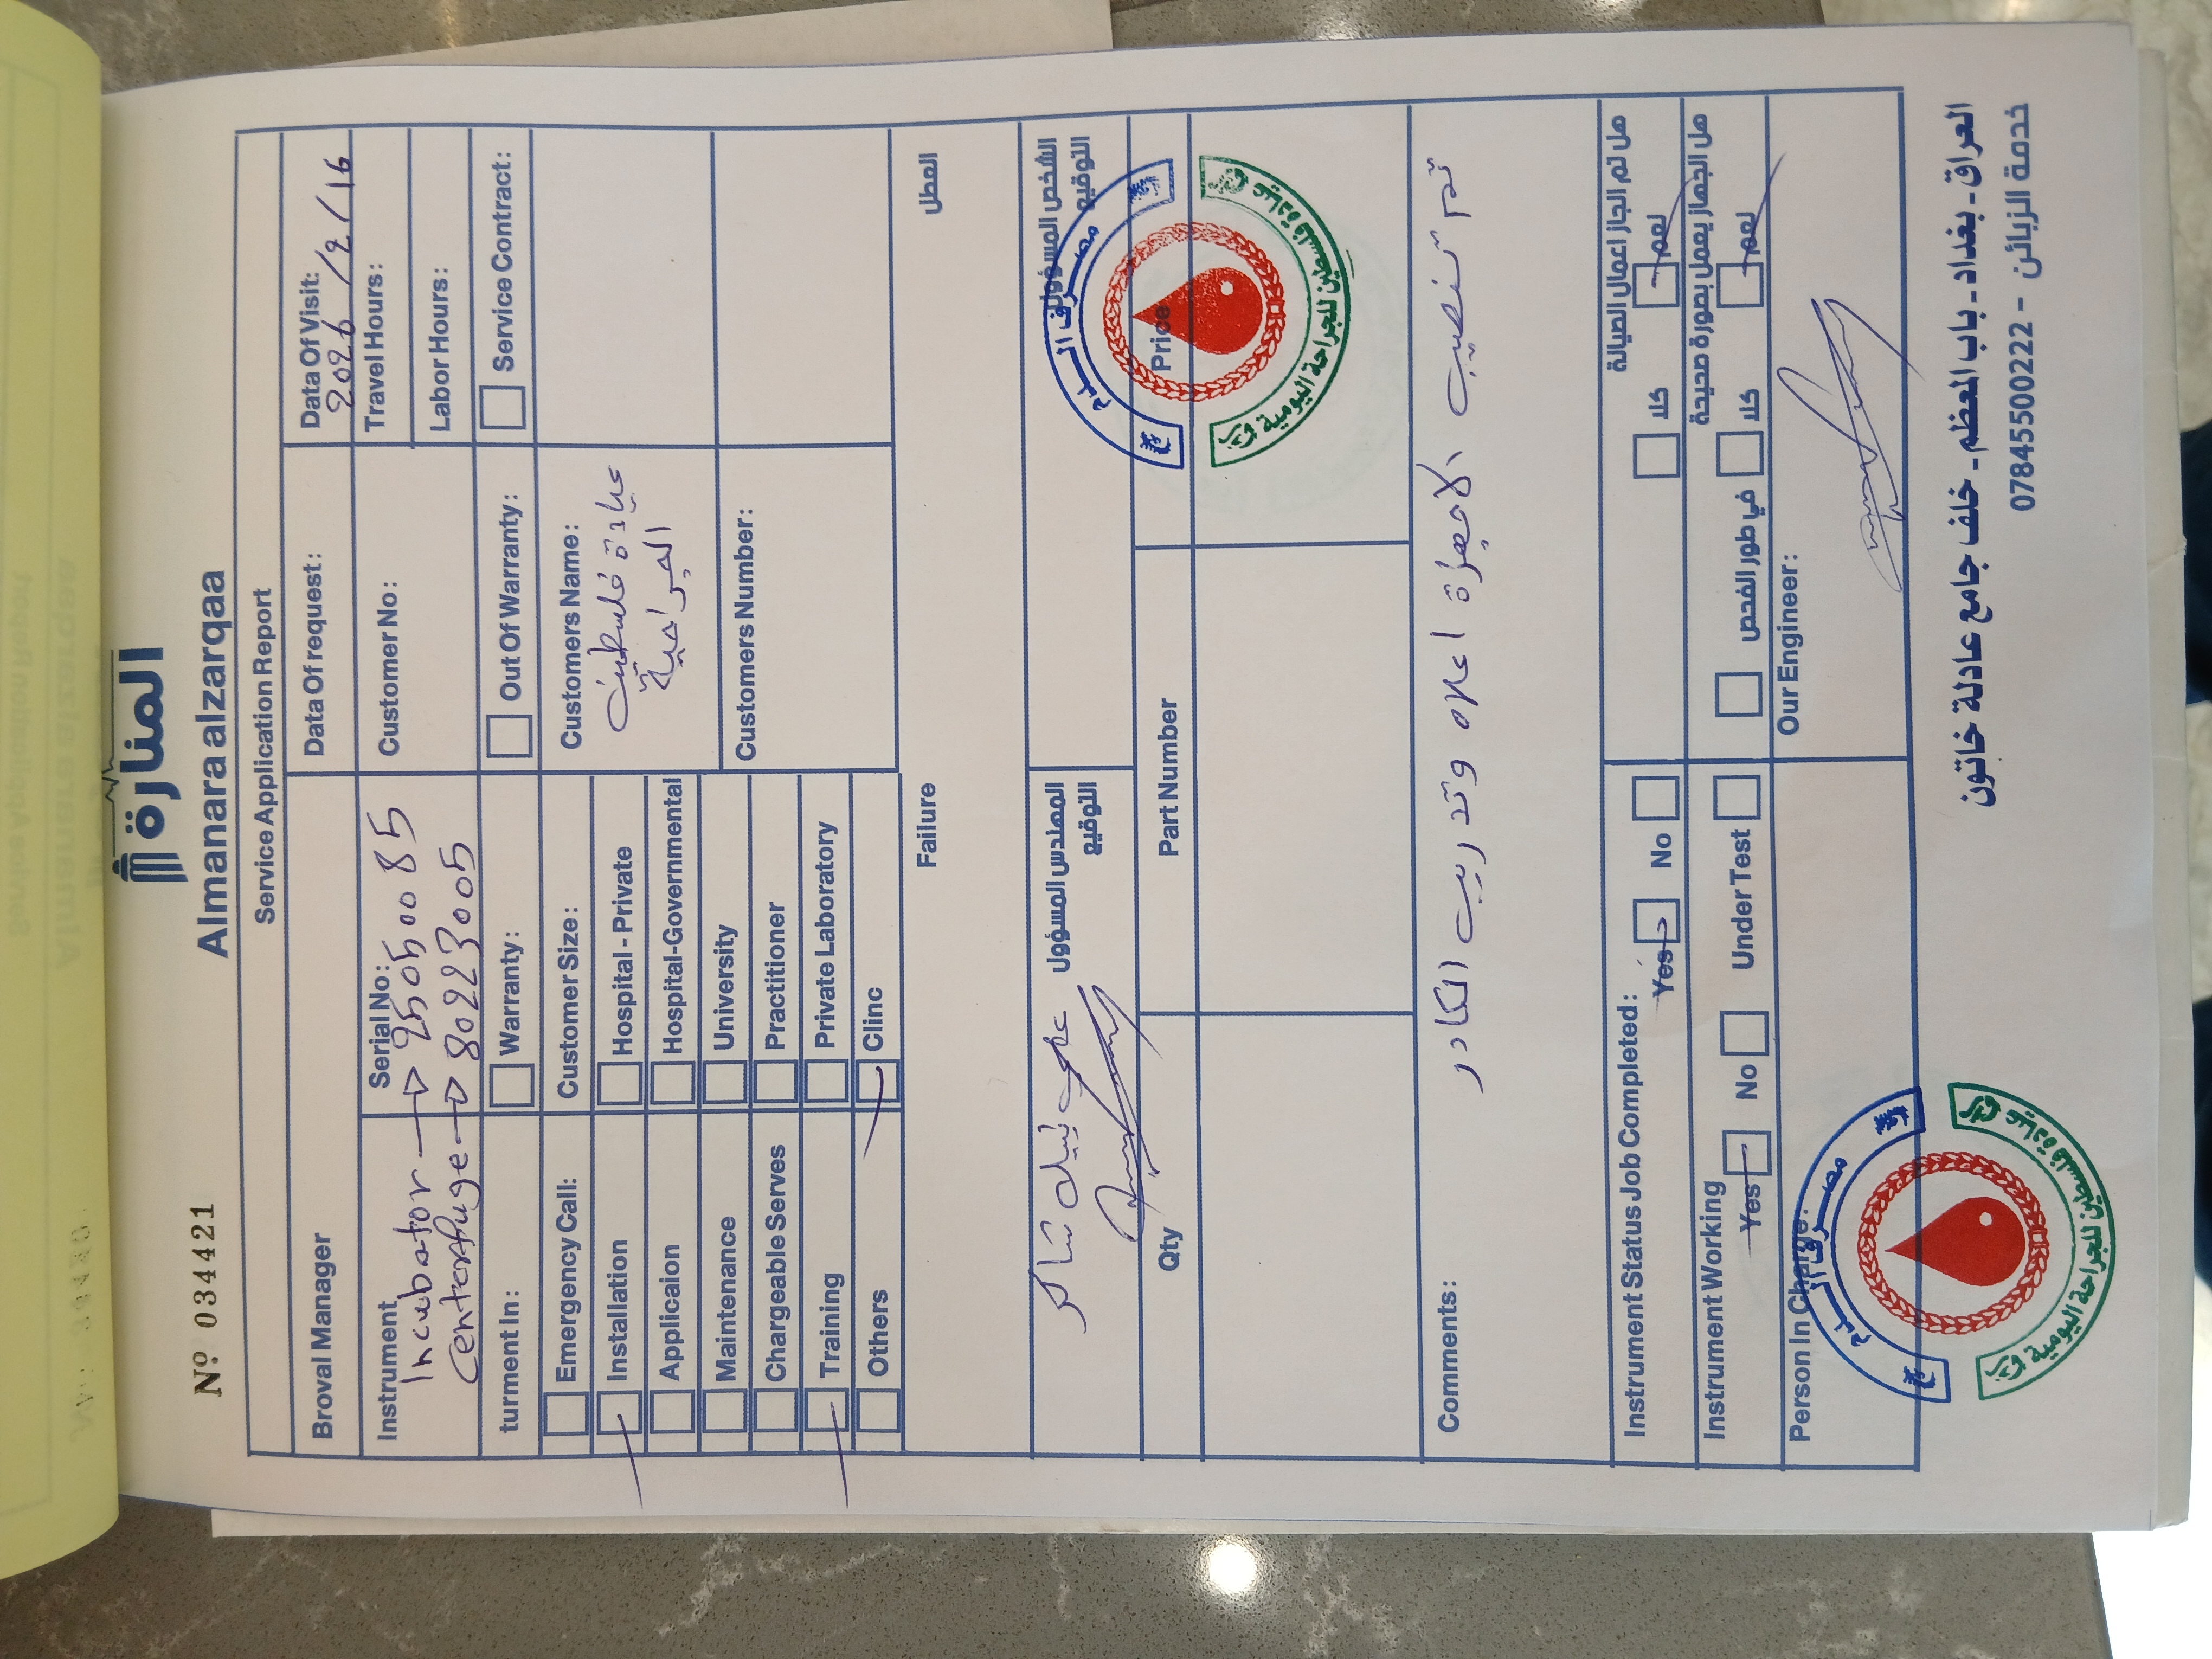 Nº 034421
المنارة
Almanara alzarqaa
Service Application Report
Broval Manager
Data Of request:
Data Of Visit:
2026/2/16
Instrument
Serial No:
Incubator → 25050085
Centerfuge → 80223005
Customer No:
Travel Hours:
Labor Hours:
turment In:
Warranty:
Out Of Warranty:
Service Contract:
Emergency Call:
Customer Size:
Customers Name:
عيادة فلسطين
الجراحية
Installation
Hospital - Private
Applicaion
Hospital-Governmental
Maintenance
University
Customers Number:
Chargeable Serves
Practitioner
Training
Private Laboratory
Others
Clinc
Failure
العطل
المهندس المسؤول
التوقيع
الشخص المسؤول
التوقيع
مصرف الدم
عيادة فلسطين للجراحة اليومية
Qty
Part Number
Price
Comments:
تم تنصيب الاجهزة اعلاه وتدريب الكادر
Instrument Status Job Completed:
Yes
No
هل تم انجاز اعمال الصيانة
نعم
كلا
Instrument Working
Yes
No
Under Test
هل الجهاز يعمل بصورة صحيحة
نعم
كلا
في طور الفحص
Person In Charge:
Our Engineer:
مصرف الدم
عيادة فلسطين للجراحة اليومية
العراق - بغداد - باب المعظم - خلف جامع عادلة خاتون
خدمة الزبائن - 07845500222